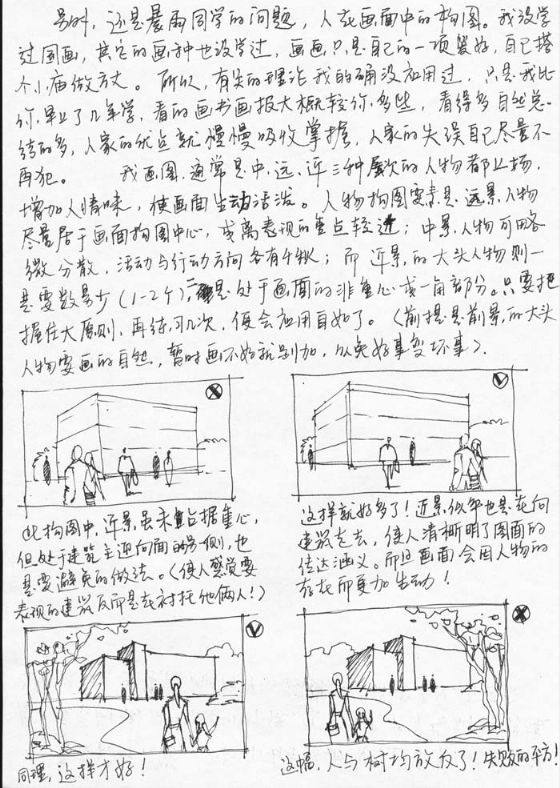 另外,还是晨雨同学的问题,人在画面中的构图。我没学
过国画,其它的画种也没学过,画画只是自己的一项爱好,自己搭
个小庙做方丈。所以,有关的理论我的确没应用过,只是我比
你早上了几年学,看的画书画报大概较你多些,看得多自然总
结的多,人家的优点就慢慢吸收掌握,人家的失误自己尽量不
再犯。 我画图,通常是中、远、近三种层次的人物都上场,
增加人情味,使画面生动活泼。人物构图要素是:远景人物
尽量居于画面构图中心,或离表现的重点较近;中景人物可略
微分散,活动与行动方向各有千秋;而近景的大头人物则一
是要数量少(1-2个),二是处于画面的非重心或一角部分。只要把
握住大原则,再练习几次,便会应用自如了。(前提是前景的大头
人物要画的自然,暂时画不好就别加,以免好事变坏事)。
此构图中,近景虽未占据重心,
但处于建筑主迎向面的另一侧,也
是要避免的做法。(使人感觉要
表现的建筑反而是在衬托他俩人!)
这样就好多了!近景似乎也是在向
建筑走去,使人清晰明了图面的
传达涵义。而且画面会因人物的
存在而更加生动!
同理,这样才好!
这幅,人与树均放反了!失败的平方!